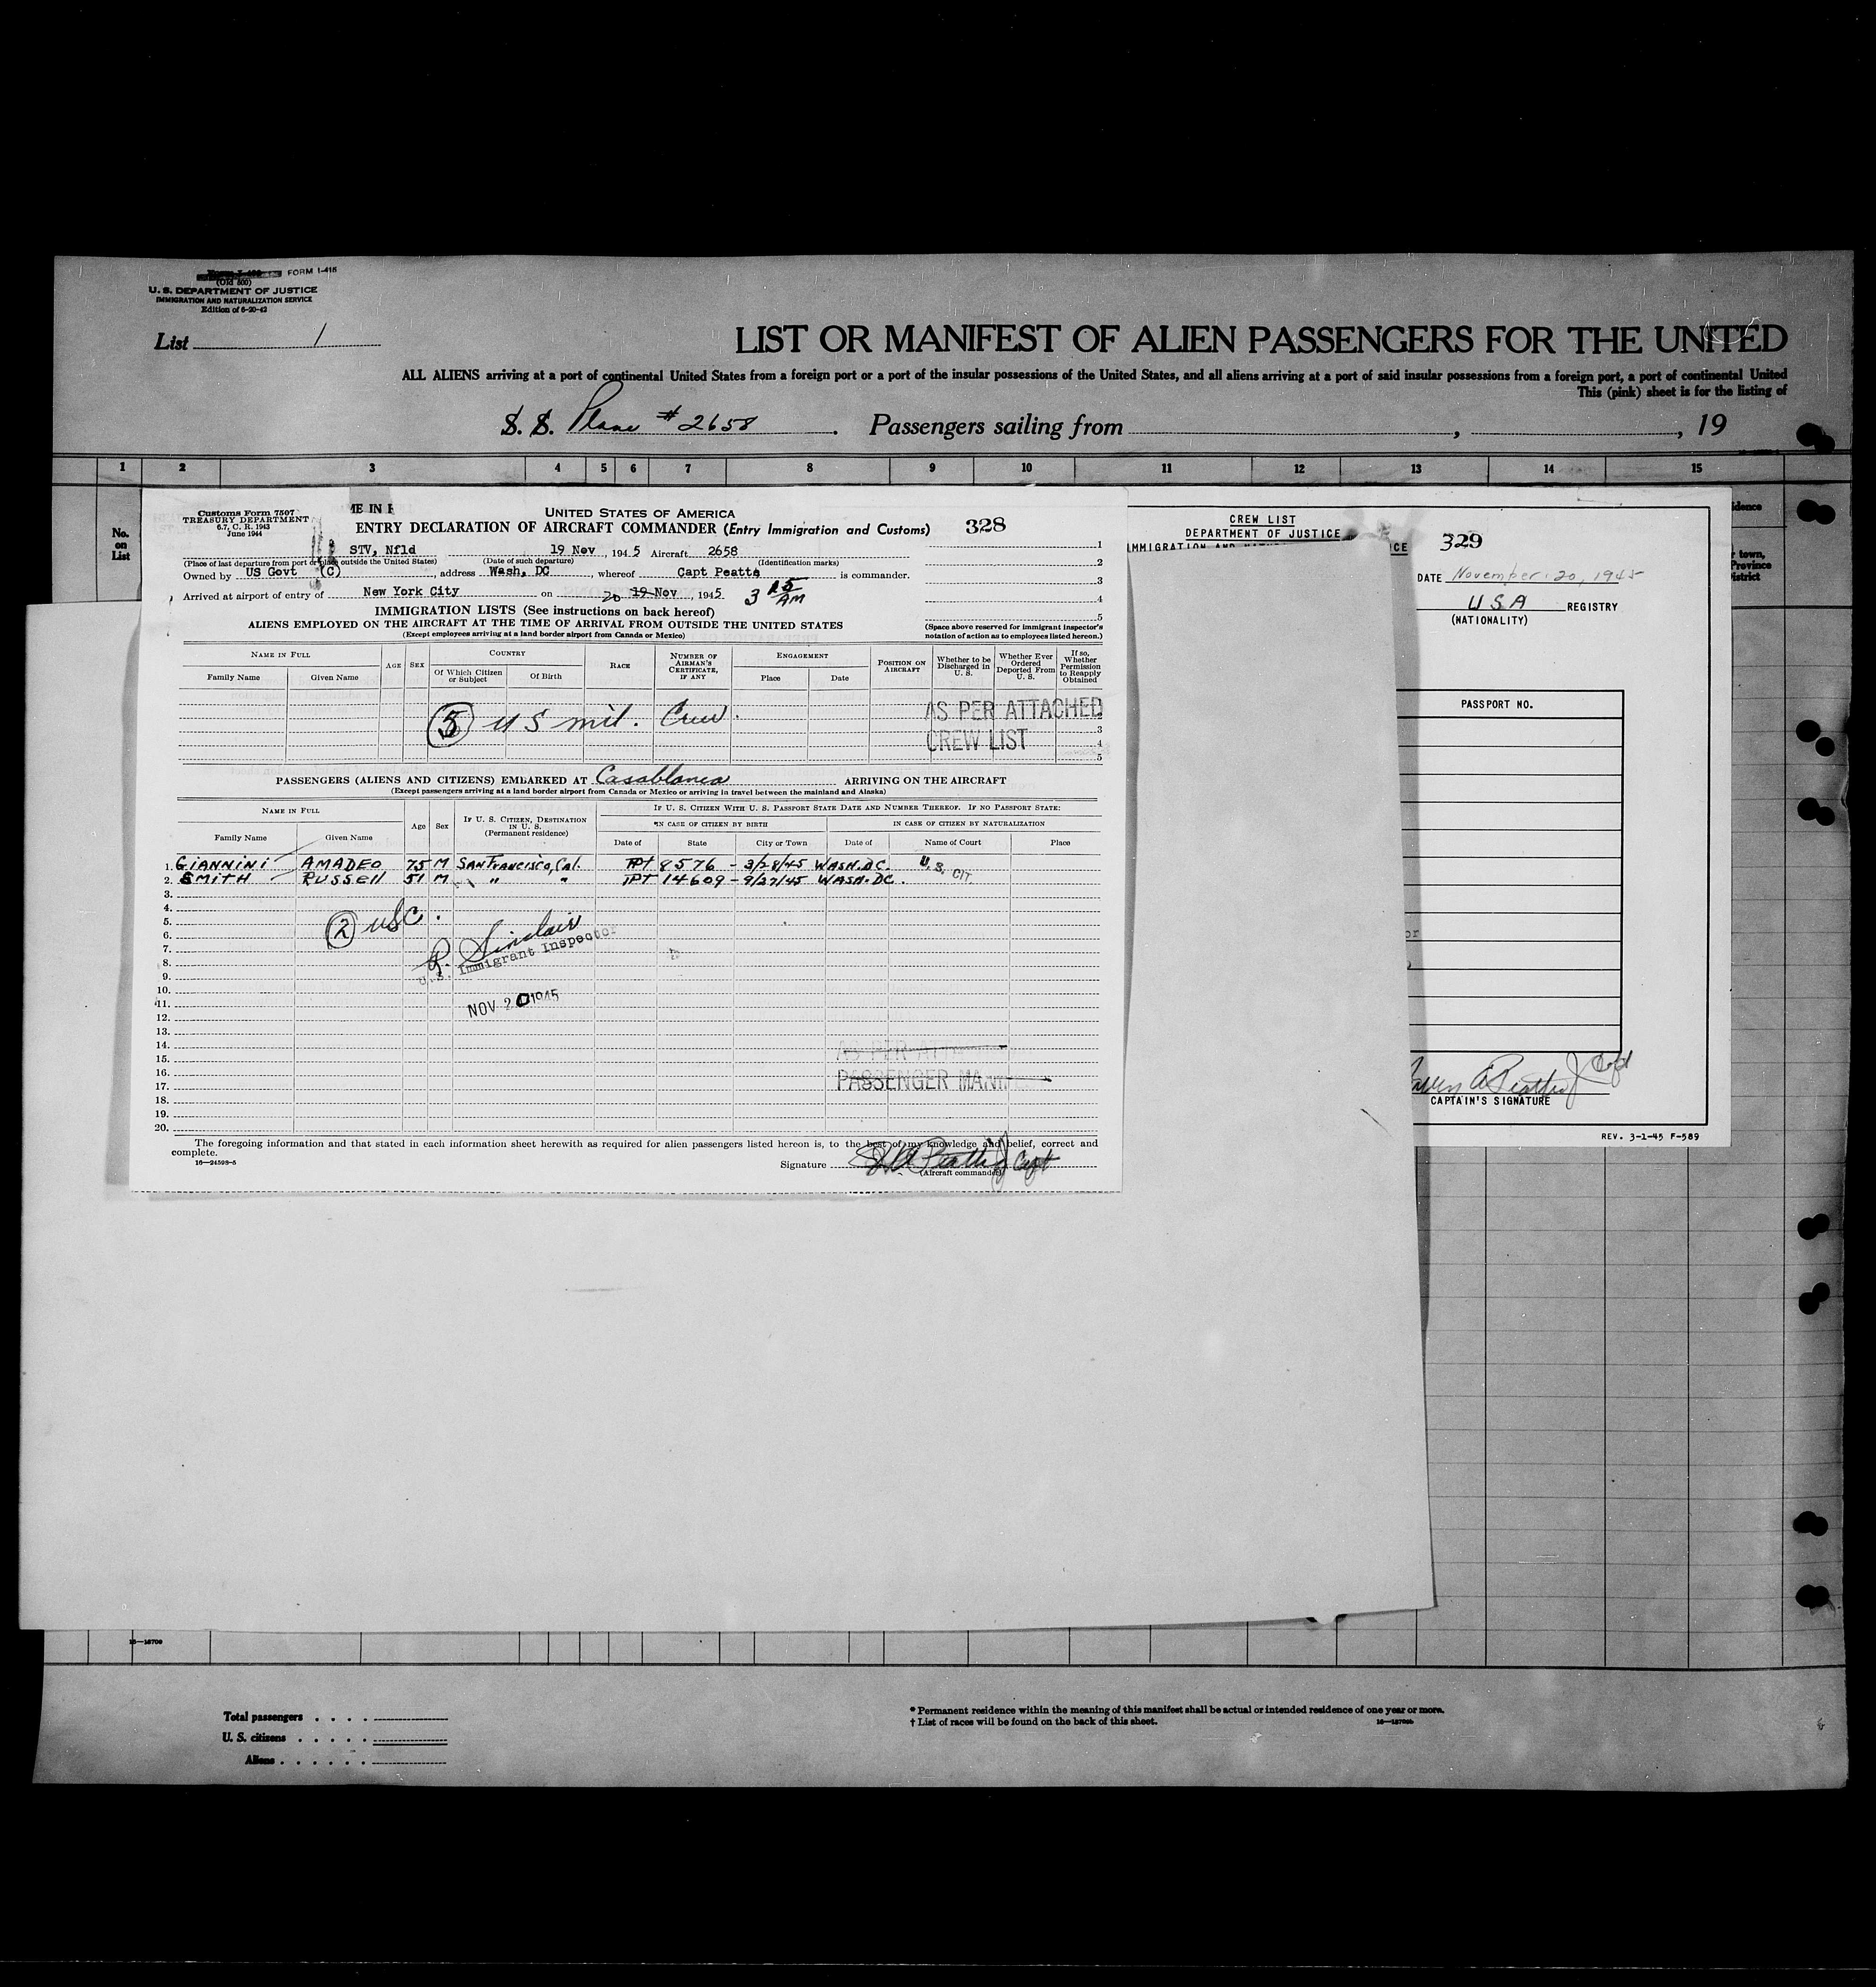 FORM I-415
(Old 500)
U. S. DEPARTMENT OF JUSTICE
IMMIGRATION AND NATURALIZATION SERVICE
Edition of 6-20-42
List 1
LIST OR MANIFEST OF ALIEN PASSENGERS FOR THE UNITED
ALL ALIENS arriving at a port of continental United States from a foreign port or a port of the insular possessions of the United States, and all aliens arriving at a port of said insular possessions from a foreign port, a port of continental United
This (pink) sheet is for the listing of
S. S. Plane # 2658 . Passengers sailing from , , 19
1 2 3 4 5 6 7 8 9 10 11 12 13 14 15
No. on List
Customs Form 7507
TREASURY DEPARTMENT
6.7, C. R. 1943
June 1944
UNITED STATES OF AMERICA
ENTRY DECLARATION OF AIRCRAFT COMMANDER (Entry Immigration and Customs) 328
STV, Nfld 19 Nov , 1945 Aircraft 2658
(Place of last departure from port or place outside the United States) (Date of such departure) (Identification marks)
Owned by US Govt (C) , address Wash, DC , whereof Capt Peatts is commander.
Arrived at airport of entry of New York City on 20 19 Nov , 1945 3 15 AM
1
2
3
4
5
IMMIGRATION LISTS (See instructions on back hereof)
ALIENS EMPLOYED ON THE AIRCRAFT AT THE TIME OF ARRIVAL FROM OUTSIDE THE UNITED STATES
(Except employees arriving at a land border airport from Canada or Mexico)
(Space above reserved for immigrant inspector's notation of action as to employees listed hereon.)
NAME IN FULL
Family Name Given Name
AGE SEX
COUNTRY
Of Which Citizen or Subject Of Birth
RACE
NUMBER OF AIRMAN'S CERTIFICATE, IF ANY
ENGAGEMENT
Place Date
POSITION ON AIRCRAFT
Whether to be Discharged in U. S.
Whether Ever Ordered Deported From U. S.
If so, Whether Permission to Reapply Obtained
5 US mil. Crew.
AS PER ATTACHED
CREW LIST
3
4
5
PASSENGERS (ALIENS AND CITIZENS) EMBARKED AT Casablanca ARRIVING ON THE AIRCRAFT
(Except passengers arriving at a land border airport from Canada or Mexico or arriving in travel between the mainland and Alaska)
NAME IN FULL
Family Name Given Name
Age Sex
IF U. S. CITIZEN, DESTINATION IN U. S.
(Permanent residence)
IF U. S. CITIZEN WITH U. S. PASSPORT STATE DATE AND NUMBER THEREOF. IF NO PASSPORT STATE:
IN CASE OF CITIZEN BY BIRTH IN CASE OF CITIZEN BY NATURALIZATION
Date of State City or Town Date of Name of Court Place
1. GIANNINI AMADEO 75 M SAN FRANCISCO, CAL. PPT 8576 - 3/28/45 WASH. DC. U.S. CIT.
2. SMITH RUSSELL 51 M " " PPT 14609 - 9/27/45 WASH. DC.
3.
4.
5.
6.
7.
8.
9.
10.
11.
12.
13.
14.
15.
16.
17.
18.
19.
20.
2 USC.
R. Sinclair
U.S. Immigrant Inspector
NOV 20 1945
AS PER ATT
PASSENGER MANI
The foregoing information and that stated in each information sheet herewith as required for alien passengers listed hereon is, to the best of my knowledge and belief, correct and
complete.
16—24598-5
Signature Capt
(Aircraft commander)
CREW LIST
DEPARTMENT OF JUSTICE
IMMIGRATION AND
ICE 329
DATE November 20, 1945
USA REGISTRY
(NATIONALITY)
PASSPORT NO.
or
Capt
CAPTAIN'S SIGNATURE
REV. 3-1-45 F-589
idence
town,
Province
istrict
16—18709
Total passengers . . . .
U. S. citizens . . . . .
Aliens . . . . . .
* Permanent residence within the meaning of this manifest shall be actual or intended residence of one year or more.
† List of races will be found on the back of this sheet.